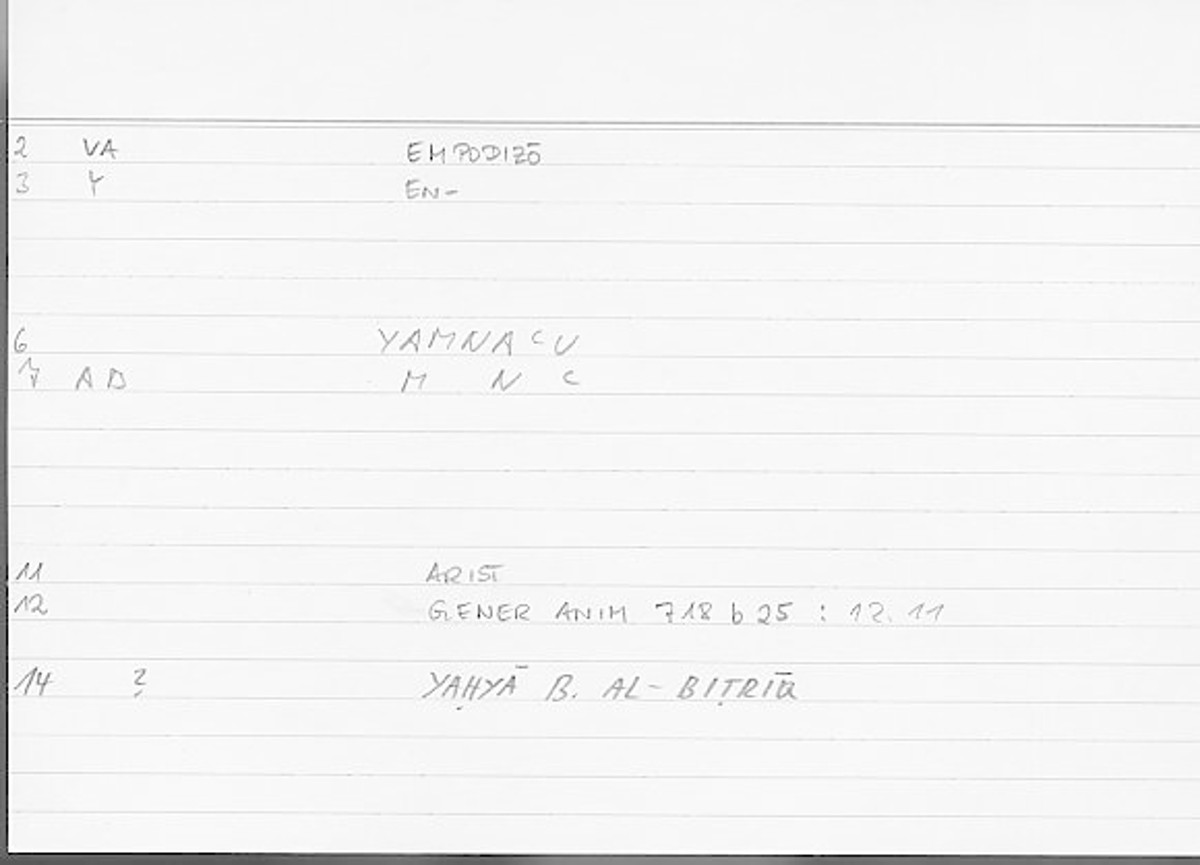 2 VA EMPODIZŌ
3 Y EN-
6 YAMNAʿU
7 AD M N ʿ
11 ARIST
12 GENER ANIM 718 b 25 : 12.11
14 ? YAḤYĀ B. AL-BIṬRĪQ